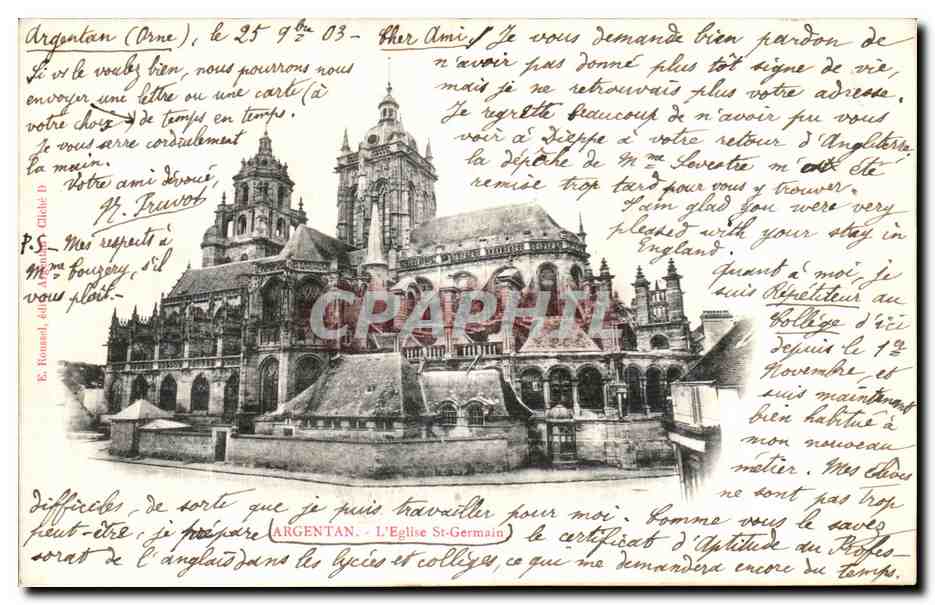 Argentan (Orne), le 25 9bre 03 - Cher Ami! Je vous demande bien pardon de
n'avoir pas donné plus tôt signe de vie,
mais je ne retrouvais plus votre adresse.
Je regrette beaucoup de n'avoir pu vous
voir à Dieppe à votre retour d'Angleterre
la dépêche de Mme Levestre m'a été
remise trop tard pour vous y trouver.
I am glad you were very
pleased with your stay in
England.
Quant à moi, je
suis Répétiteur au
Collège d'ici
depuis le 1er
Novembre, et
suis maintenant
bien habitué à
mon nouveau
métier. Mes élèves
ne sont pas trop
difficiles, de sorte que je puis travailler pour moi. Comme vous le savez
peut-être, je prépare le certificat d'Aptitude au Profes-
sorat de l'anglais dans les lycées et collèges, ce qui me demandera encore du temps.
Si vs le voulez bien, nous pourrons nous
envoyer une lettre ou une carte (à
votre choix) de temps en temps.
Je vous serre cordialement
la main.
Votre ami dévoué,
P.S - Mes respects à
Mme Bougery, s'il
vous plaît -
ARGENTAN. - L'Eglise St-Germain
E. Roussel, édit. Argentan Cliché D
CPARAMA.COM